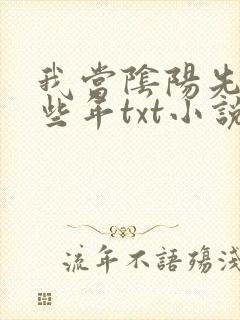 我當陰陽先
些年txt小說
流年不語殤淺